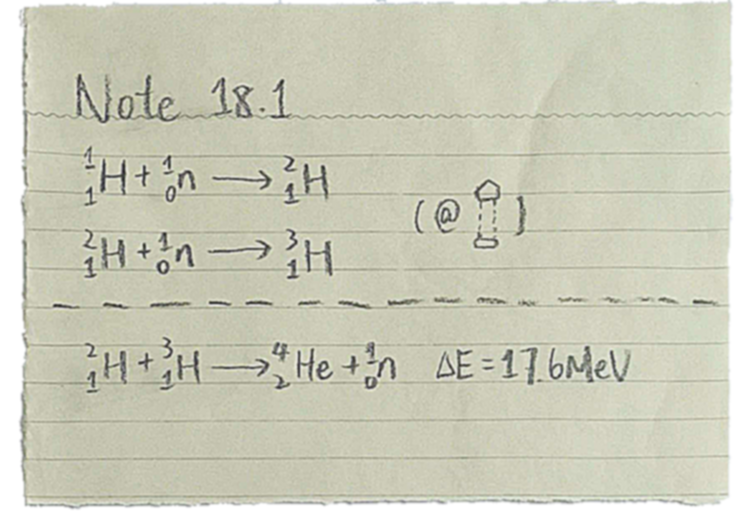 Note 18.1
¹₁H + ¹₀n ⟶ ²₁H
(@ )
²₁H + ¹₀n ⟶ ³₁H
²₁H + ³₁H ⟶ ⁴₂He + ¹₀n ΔE = 17.6MeV